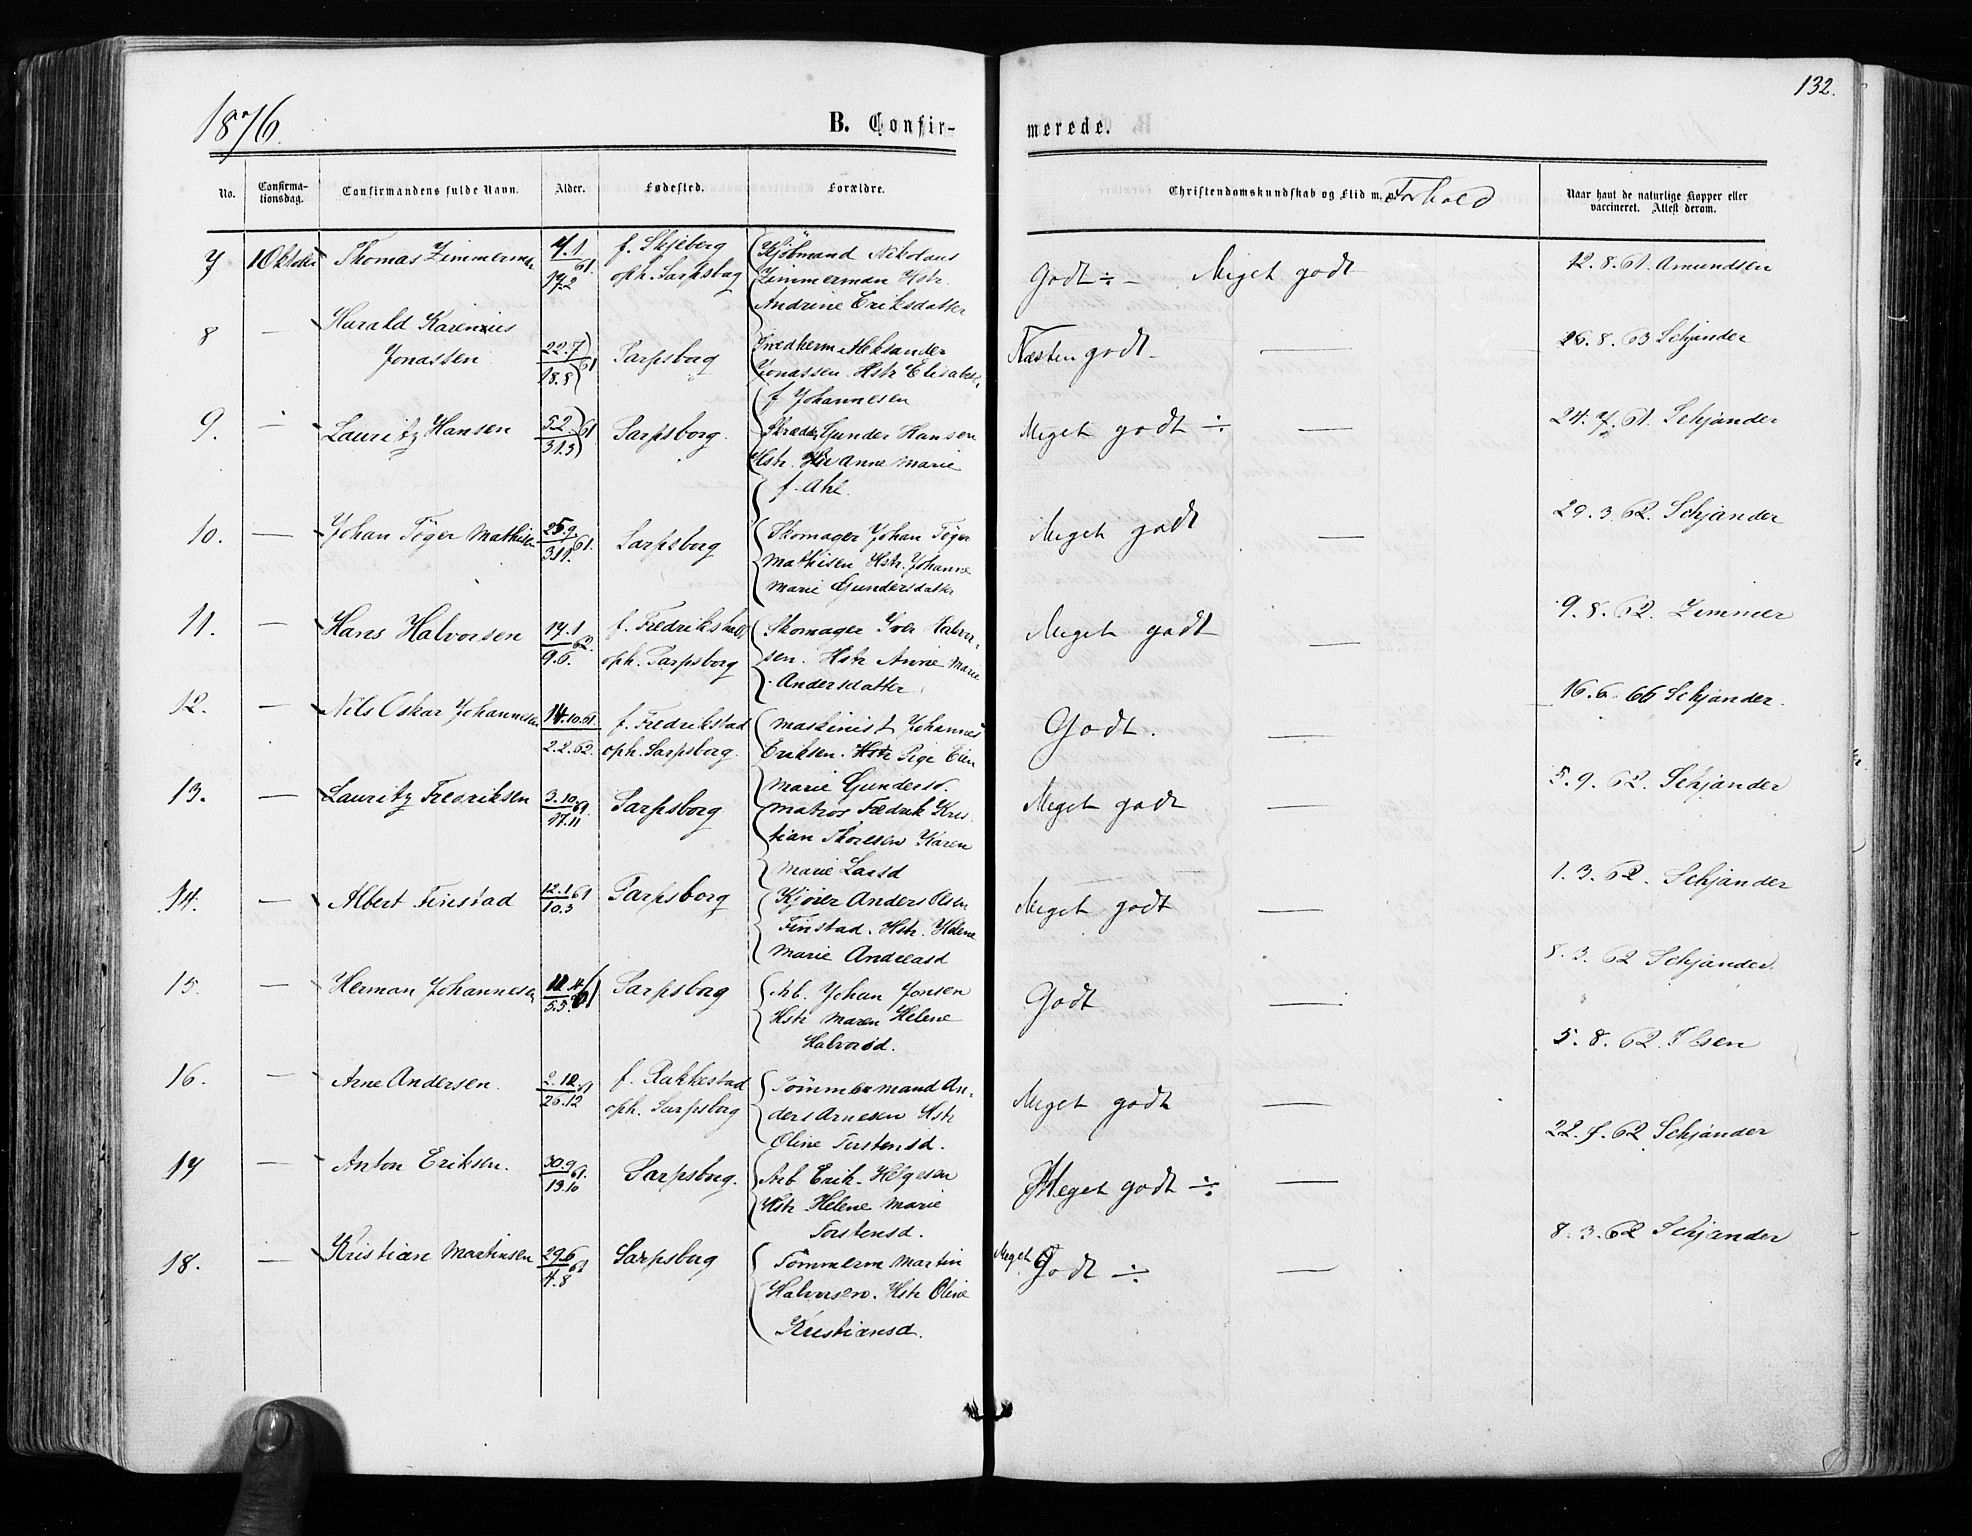 132.
1876.
B. Confir-
merede.
No.
Confirma-
tionsdag.
Confirmandens fulde Navn.
Alder.
Fødested.
Forældre.
Christendomskundskab og Flid m. v. Forhold
Naar havt de naturlige Kopper eller
vaccineret. Attest derom.
7 1 Oktober Thomas Zimmerman 7.1 61. f. Skjeberg Kjöbmand Nikolaus
17.2 oph. Sarpsborg Zimmerman Hstr. Godt ÷ – Meget godt 12.8.61. Amundsen
Andrine Eriksdatter
8 — Harald Karenius
Jonassen 22.7 61 Sarpsborg Snedkerm Aleksander Næsten godt — 26.8.63 Schjander
18.8 Jonassen. Hstr Elisabet
f Johannesen
9. — Lauritz Hansen 5.2 61 Sarpsborg. Skrædder Gunder Hansen Meget godt ÷ — 24.7.61. Schjander
31.3 Hstr. Anne Marie
f. Ahl.
10. — Johan Töger Mathisen 25.9 61. Sarpsborg Skomager Johan Töger Meget godt — 29.3.62. Schjander
3.11. Mathisen Hstr. Johanne
Marie Gundersdatter
11. — Hans Halvorsen 17.1 62. f. Fredrikshald Skomager Iver Halvor- Meget godt — 9.8.62. Zimmer
9.6. oph. Sarpsborg sen. Hstr Anne Marie
Andersdatter
12. — Nils Oskar Johannesen 14.10.61. f. Fredrikstad Maskinist Johannes Godt. — 16.6.66 Schjander.
2.2.62. oph. Sarpsborg. Eriksen. Pige Elen
Marie Gundersd.
13. — Lauritz Fredriksen 3.10 61. Sarpsborg Matros Fredrik Kris Meget godt — 5.9.62. Schjander
17.11 tian Thoresen Karen
Marie Larsd
14. — Albert Finstad 12.1 61 Sarpsborg Kjörer Anders Olsen Meget godt — 1.3.62. Schjander
10.3 Finstad. Hstr. Helene
Marie Andreasd
15. — Herman Johannesen 61 Sarpsborg Arb. Johan Jonsen Godt — 8.3.62 Schjander.
5.5. Hstr Maren Helene
Halvorsd.
16. — Arne Andersen. 2.12 61 f. Rakkestad Tömmermand An- Meget godt — 5.8.62. Ibsen
26.12 oph. Sarpsborg ders Arnesen Hstr
Oline Torstensd.
17 — Anton Eriksen. 30.9 61. Sarpsborg. Arb Erik Helgesen Meget godt ÷ — 22.7.62 Schjander
13.10 Hstr Helene Marie
Torstensd.
18. — Kristian Martinsen 29.6 61 Sarpsborg Tömmerm Martin Meget Godt ÷ — 8.3.62 Schjander
4.8 Halvorsen. Hstr Oline
Kristiansd.